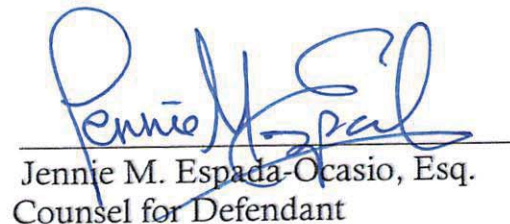 Jennie M Espad
Jennie M. Espada-Ocasio, Esq.
Counsel for Defendant